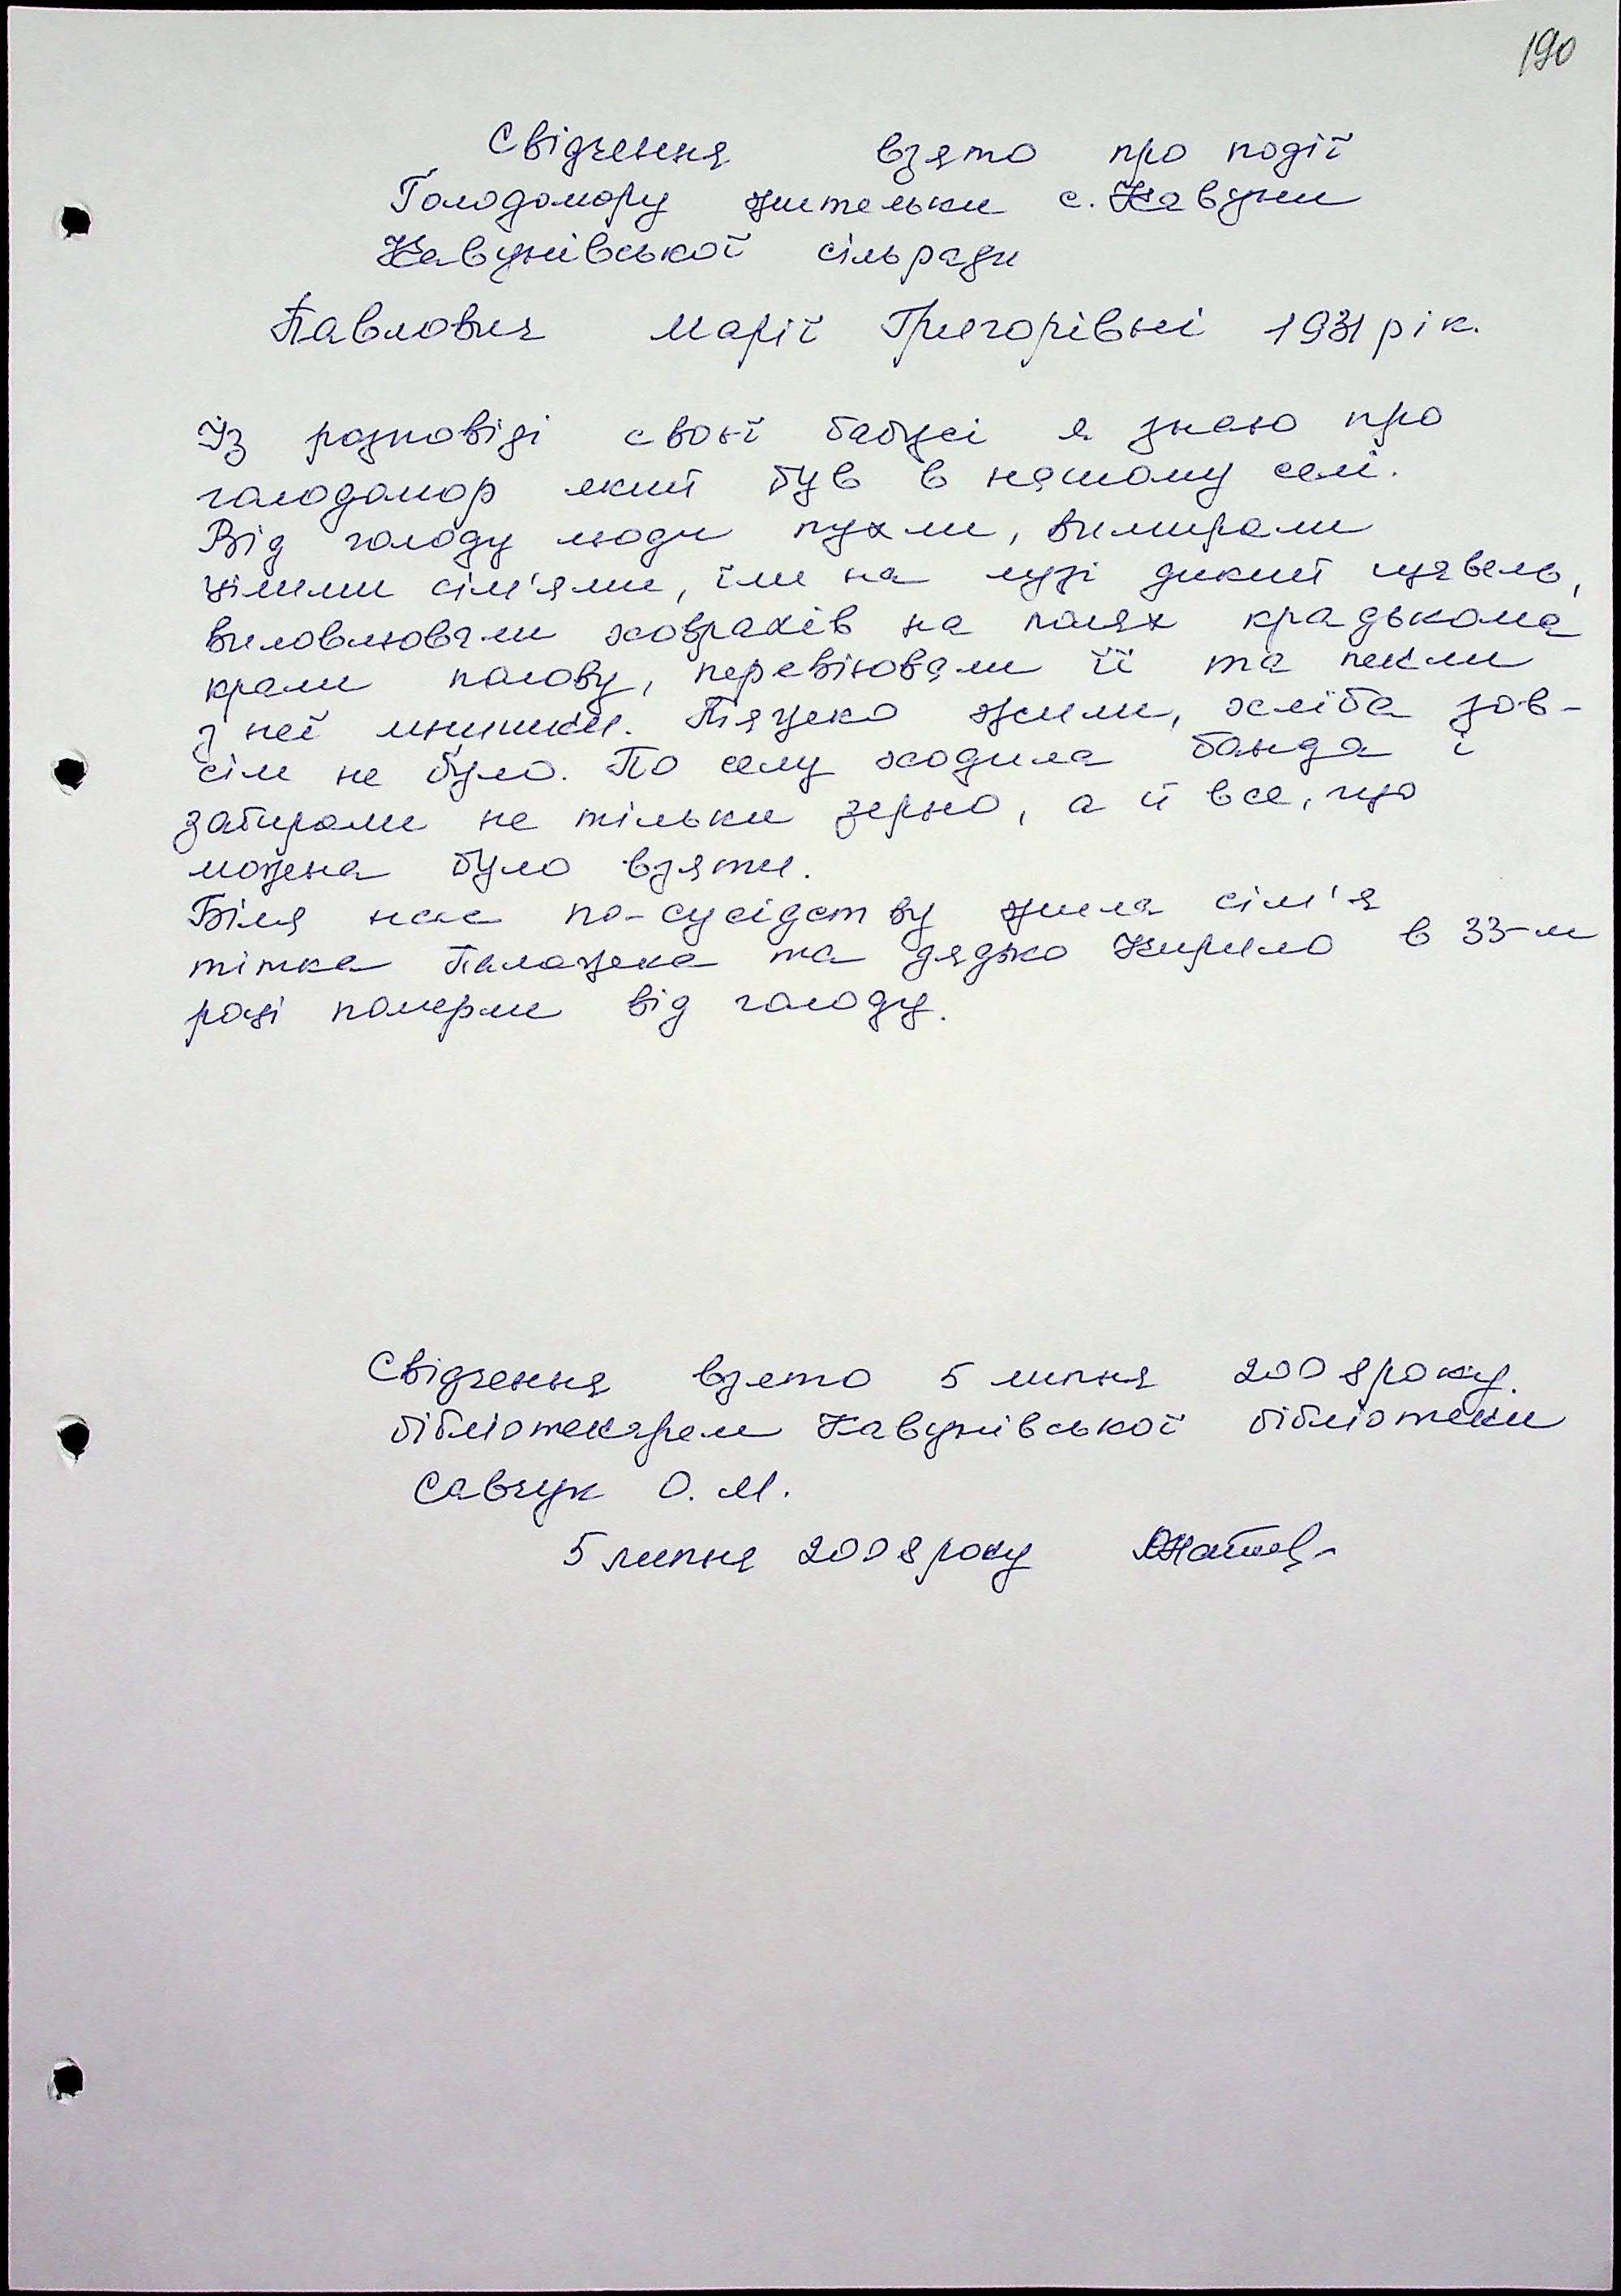 190
Свідчення взято про події
Голодомору жительки с. Кавуни
Кавунівської сільради
Павлович Марії Григорівні 1931 рік.
Із розповіді своєї бабусі я знаю про
голодомор який був в нашому селі.
Від голоду люди пухли, вимирали
цілими сім'ями, їли на лузі дикий щавель,
виловлювали ховрахів на полях крадькома
крали полову, перевіювали її та пекли
з неї млиники. Тяжко жили, хліба зов-
сім не було. По селу ходила банда і
забирали не тільки зерно, а й все, що
можна було взяти.
Біля нас по-сусідству жила сім'я
тітка Палажка та дядько Кирило в 33-м
році померли від голоду.
Свідчення взято 5 липня 2008 року.
бібліотекарем Кавунівської бібліотеки
Савчук О. М.
5 липня 2008 року